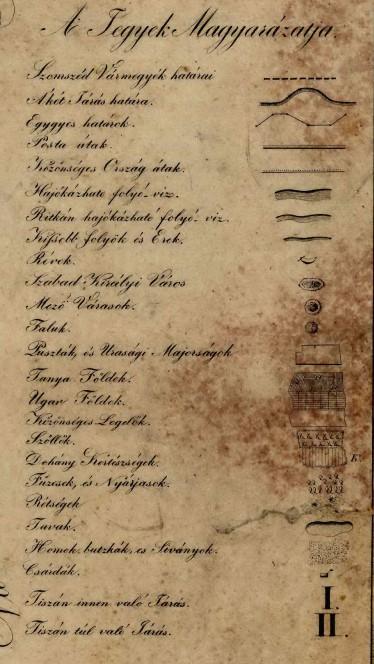 A Jegyek Magyarázatja.
Szomszéd Vármegyék határai
A két Járás határa.
Egygyes határok.
Posta útak.
Közönséges Ország útak.
Hajókázható folyó-viz.
Ritkán hajókázható folyó-viz.
Kissebb folyók és Erek.
Révek.
Szabad Királyi Város
Mező Várasok.
Faluk.
Puszták, és Urasági Majorságok
Tanya Földek.
Ugar Földek.
Közönséges Legelők.
Szőllők.
Dohány Kertészségek. K.
Füzesek, és Nyárjasok.
Rétségek
Tavak.
Homok butzkák, és Siványok.
Csárdák.
Tiszán innen való Járás. I.
Tiszán túl való Járás. II.